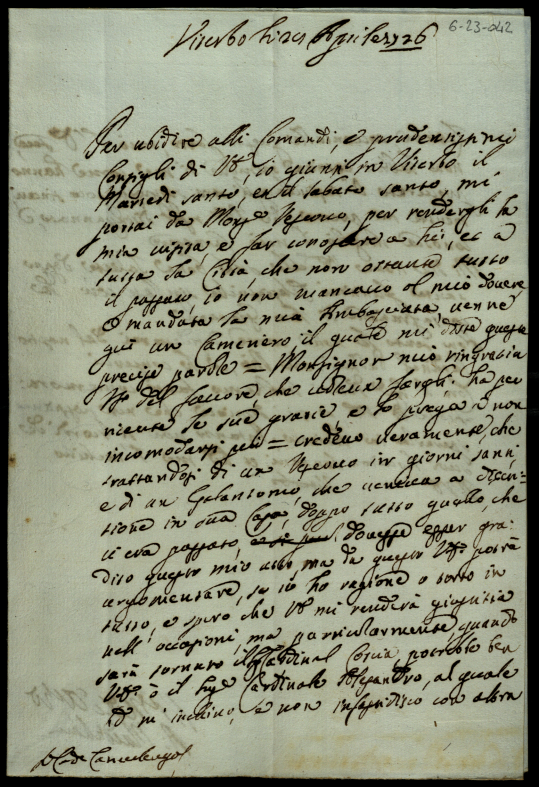 6-23-042
Viterbo li 21 Aprile 1726
Per ubidire alli Comandi, e prudentissimi
Consigli di V.S. io giunsi in Viterbo il
Martedi santo, et il sabato santo, mi
portai da Monsr Vescovo, per rendergli la
mia visita, e far conoscere a lui, et a
tutta la Città, che non ostante tutto
il passato, io non mancavo al mio dovere
e mandata la mia Imbasciata, venne
qui un Cameriero, il quale mi disse queste
precise parole = Monsignor mio ringrazia
V.S. del favore, che voleva fargli: ha per
ricevute le sue grazie e lo prega a non
incomodarsi più = credevo veramente, che
trattandosi di un Vescovo in giorni santi
e di un Galantomo, che veniva a
in sua Casa, doppo tutto quello, che
ci era passato, dovesse esser gra-
dito questo mio atto, ma da questo V.S. potrà
argomentare, se io ho ragione o torto in
tutto, e spero che V.S. mi renderà giustizia
nell'occasioni, ma particolarmente, quando
sarà tornato il Cardinal Coscia, potrebbe ben
V.S. o il Sige Cardinale Alesandro, al quale
mi inchino, e non infastidisco con altra